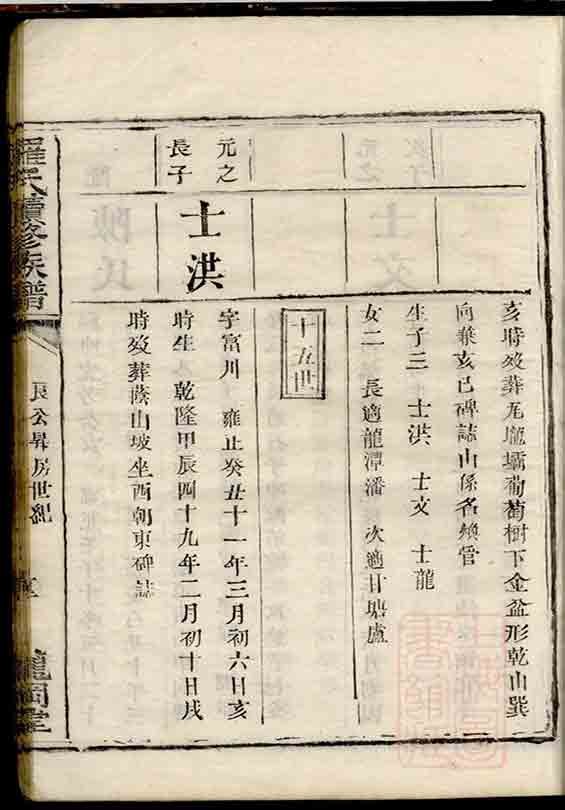 亥時歿葬尾壠壩葡萄樹下金盆形乾山巽
向兼亥巳碑誌山係名煥管
生子三 士洪 士文 士龍
女二 長適龍潭潘 次適甘塘盧
十五世
元之
長子
士洪
字富川 雍正癸丑十一年三月初六日亥
時生 乾隆甲辰四十九年二月初十日戌
時歿葬蔭山坡坐酉朝東碑誌
羅氏續修族譜
長公昇房世紀